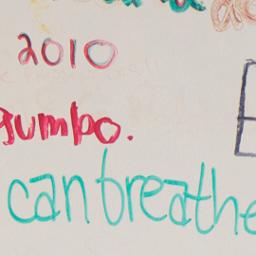 2010
gumbo.
can breathe